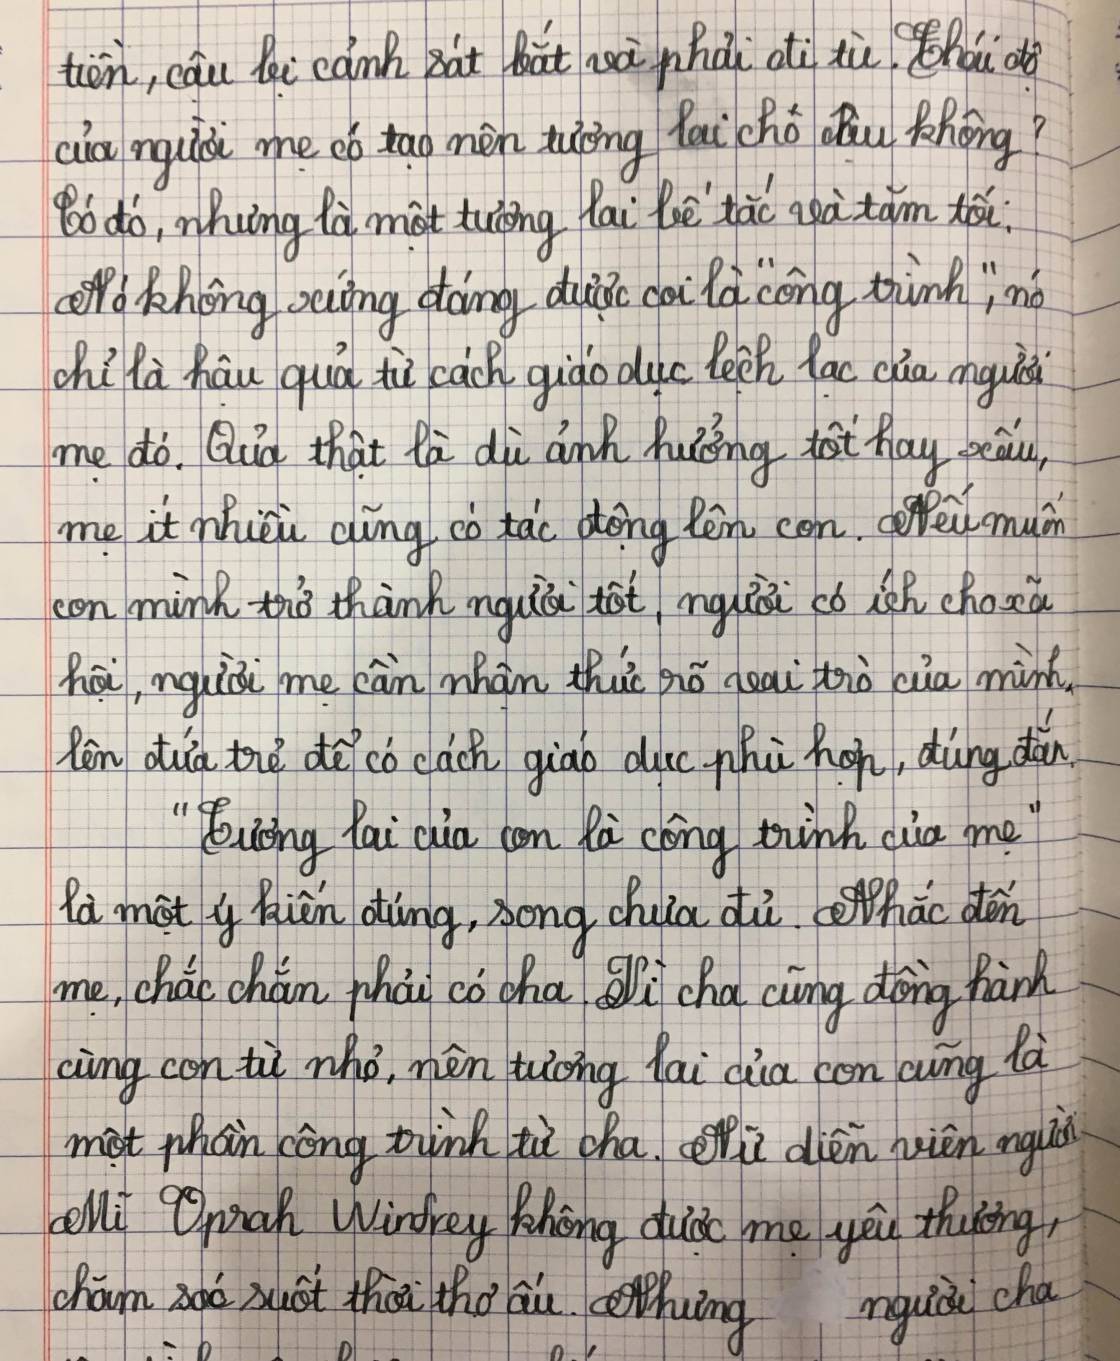 tiền, cậu bị cảnh sát bắt và phải đi tù. Thái độ
của người mẹ có tạo nên tương lai cho cậu không?
Có đó, nhưng là một tương lai bế tắc và tăm tối.
Nó không xứng đáng được coi là "công trình", nó
chỉ là hậu quả từ cách giáo dục lệch lạc của người
mẹ đó. Quả thật là dù ảnh hưởng tốt hay xấu,
mẹ ít nhiều cũng có tác động lên con. Nếu muốn
con mình trở thành người tốt, người có ích cho xã
hội, người mẹ cần nhận thức rõ vai trò của mình
lên đứa trẻ để có cách giáo dục phù hợp, đúng đắn.
"Tương lai của con là công trình của mẹ"
là một ý kiến đúng, song chưa đủ. Nhắc đến
mẹ, chắc chắn phải có cha. Vì cha cũng đồng hành
cùng con từ nhỏ, nên tương lai của con cũng là
một phần công trình từ cha. Nữ diễn viên người
Mĩ Oprah Winfrey không được mẹ yêu thương,
chăm sóc suốt thời thơ ấu. Nhưng người cha